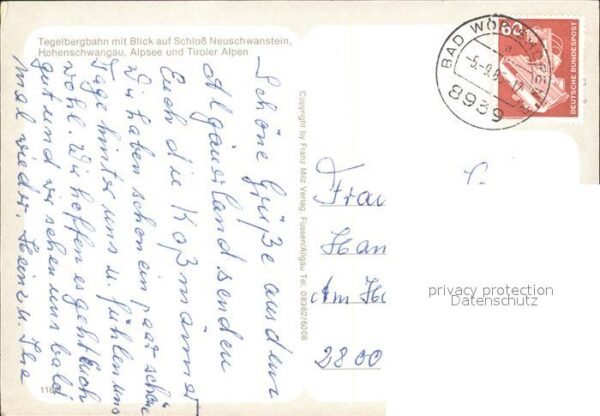 Tegelbergbahn mit Blick auf Schloß Neuschwanstein,
Hohenschwangau, Alpsee und Tiroler Alpen
Schöne Grüße aus dem
Algäuerland senden
Euch die Koßmänner
Wir haben schon ein paar schöne
Tage hinter uns u. fühlen uns
wohl. Wir hoffen es geht Euch
gut und wir sehen uns bald
mal wieder. Heinz u. Ilse
1182
Copyright by Franz Milz Verlag, Füssen/Allgäu Tel. 08362/6008
BAD WÖRISHOFEN
-5.-9.8
-17
8939
60
DEUTSCHE BUNDESPOST
Frau
Han
Am
2800
privacy protection
Datenschutz